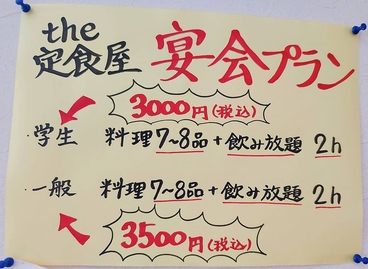 the
定食屋 宴会プラン
3000円(税込)
・学生 料理7~8品+飲み放題 2h
・一般 料理7~8品+飲み放題 2h
3500円(税込)